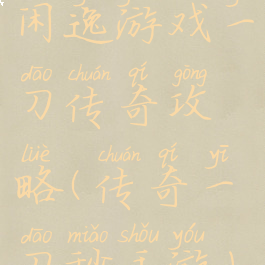 闲逸游戏一
dāo chuán qí gōng
刀传奇攻
lüè chuán qí yī
略(传奇一
dāo miǎo shǒu yóu
刀秒手游)